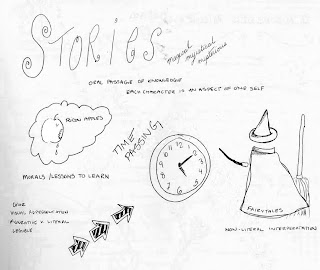 STORIES
magical
mystical
mysterious
ORAL PASSAGE OF KNOWLEDGE
EACH CHARACTER IS AN ASPECT OF ONE SELF
POISON APPLES
TIME
PASSING
12
3
6
9
MORALS/LESSONS TO LEARN
FAIRYTALES
VISUAL REPRESENTATION
FIGURATIVE V LITERAL
LEGIBLE
NON-LITERAL INTERPRETATION